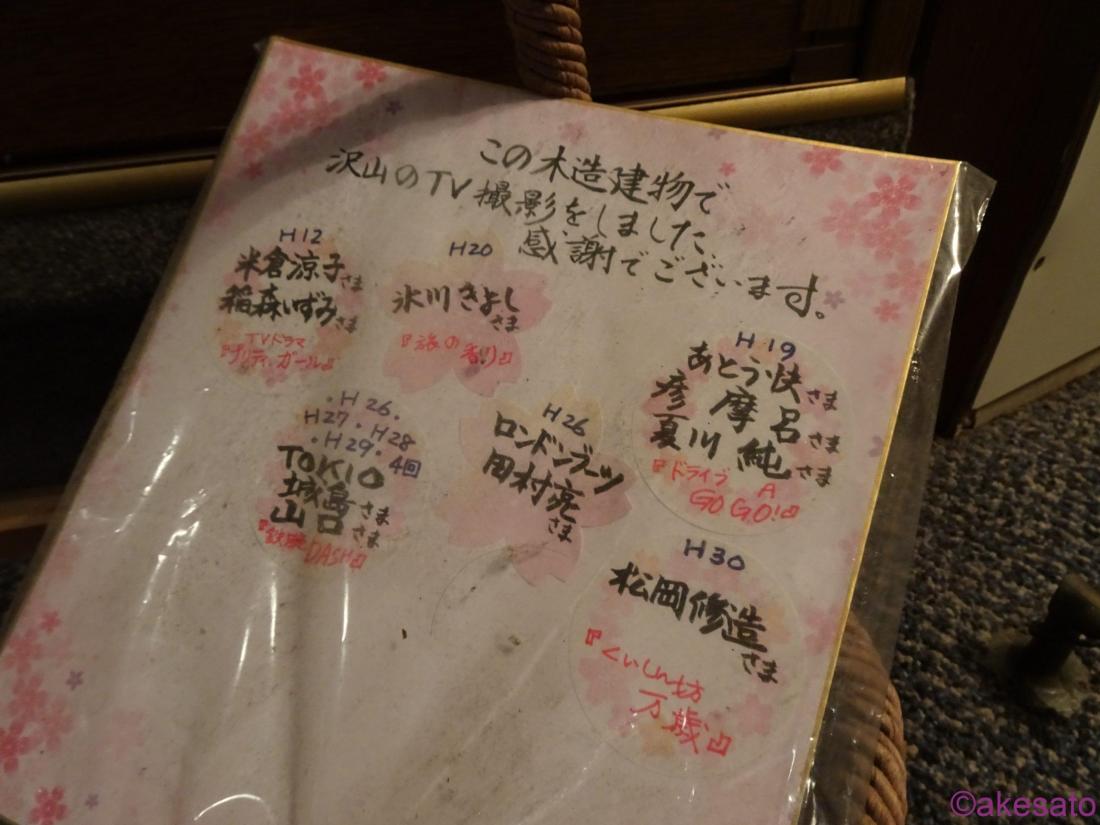 この木造建物で
沢山のTV撮影をしました
感謝でございます。
H12
米倉涼子さま
稲森いずみさま
TVドラマ
『プリティ・ガール』
H20
氷川きよしさま
『旅の香り』
H19
あとう快さま
彦摩呂さま
夏川純さま
『ドライブ A
GO GO!』
・H26・
H27・H28
・H29・4回
TOKIO
城島さま
山口さま
『鉄腕DASH』
H26
ロンドンブーツ
田村亮さま
H30
松岡修造さま
『くいしん坊
万歳』
©akesato